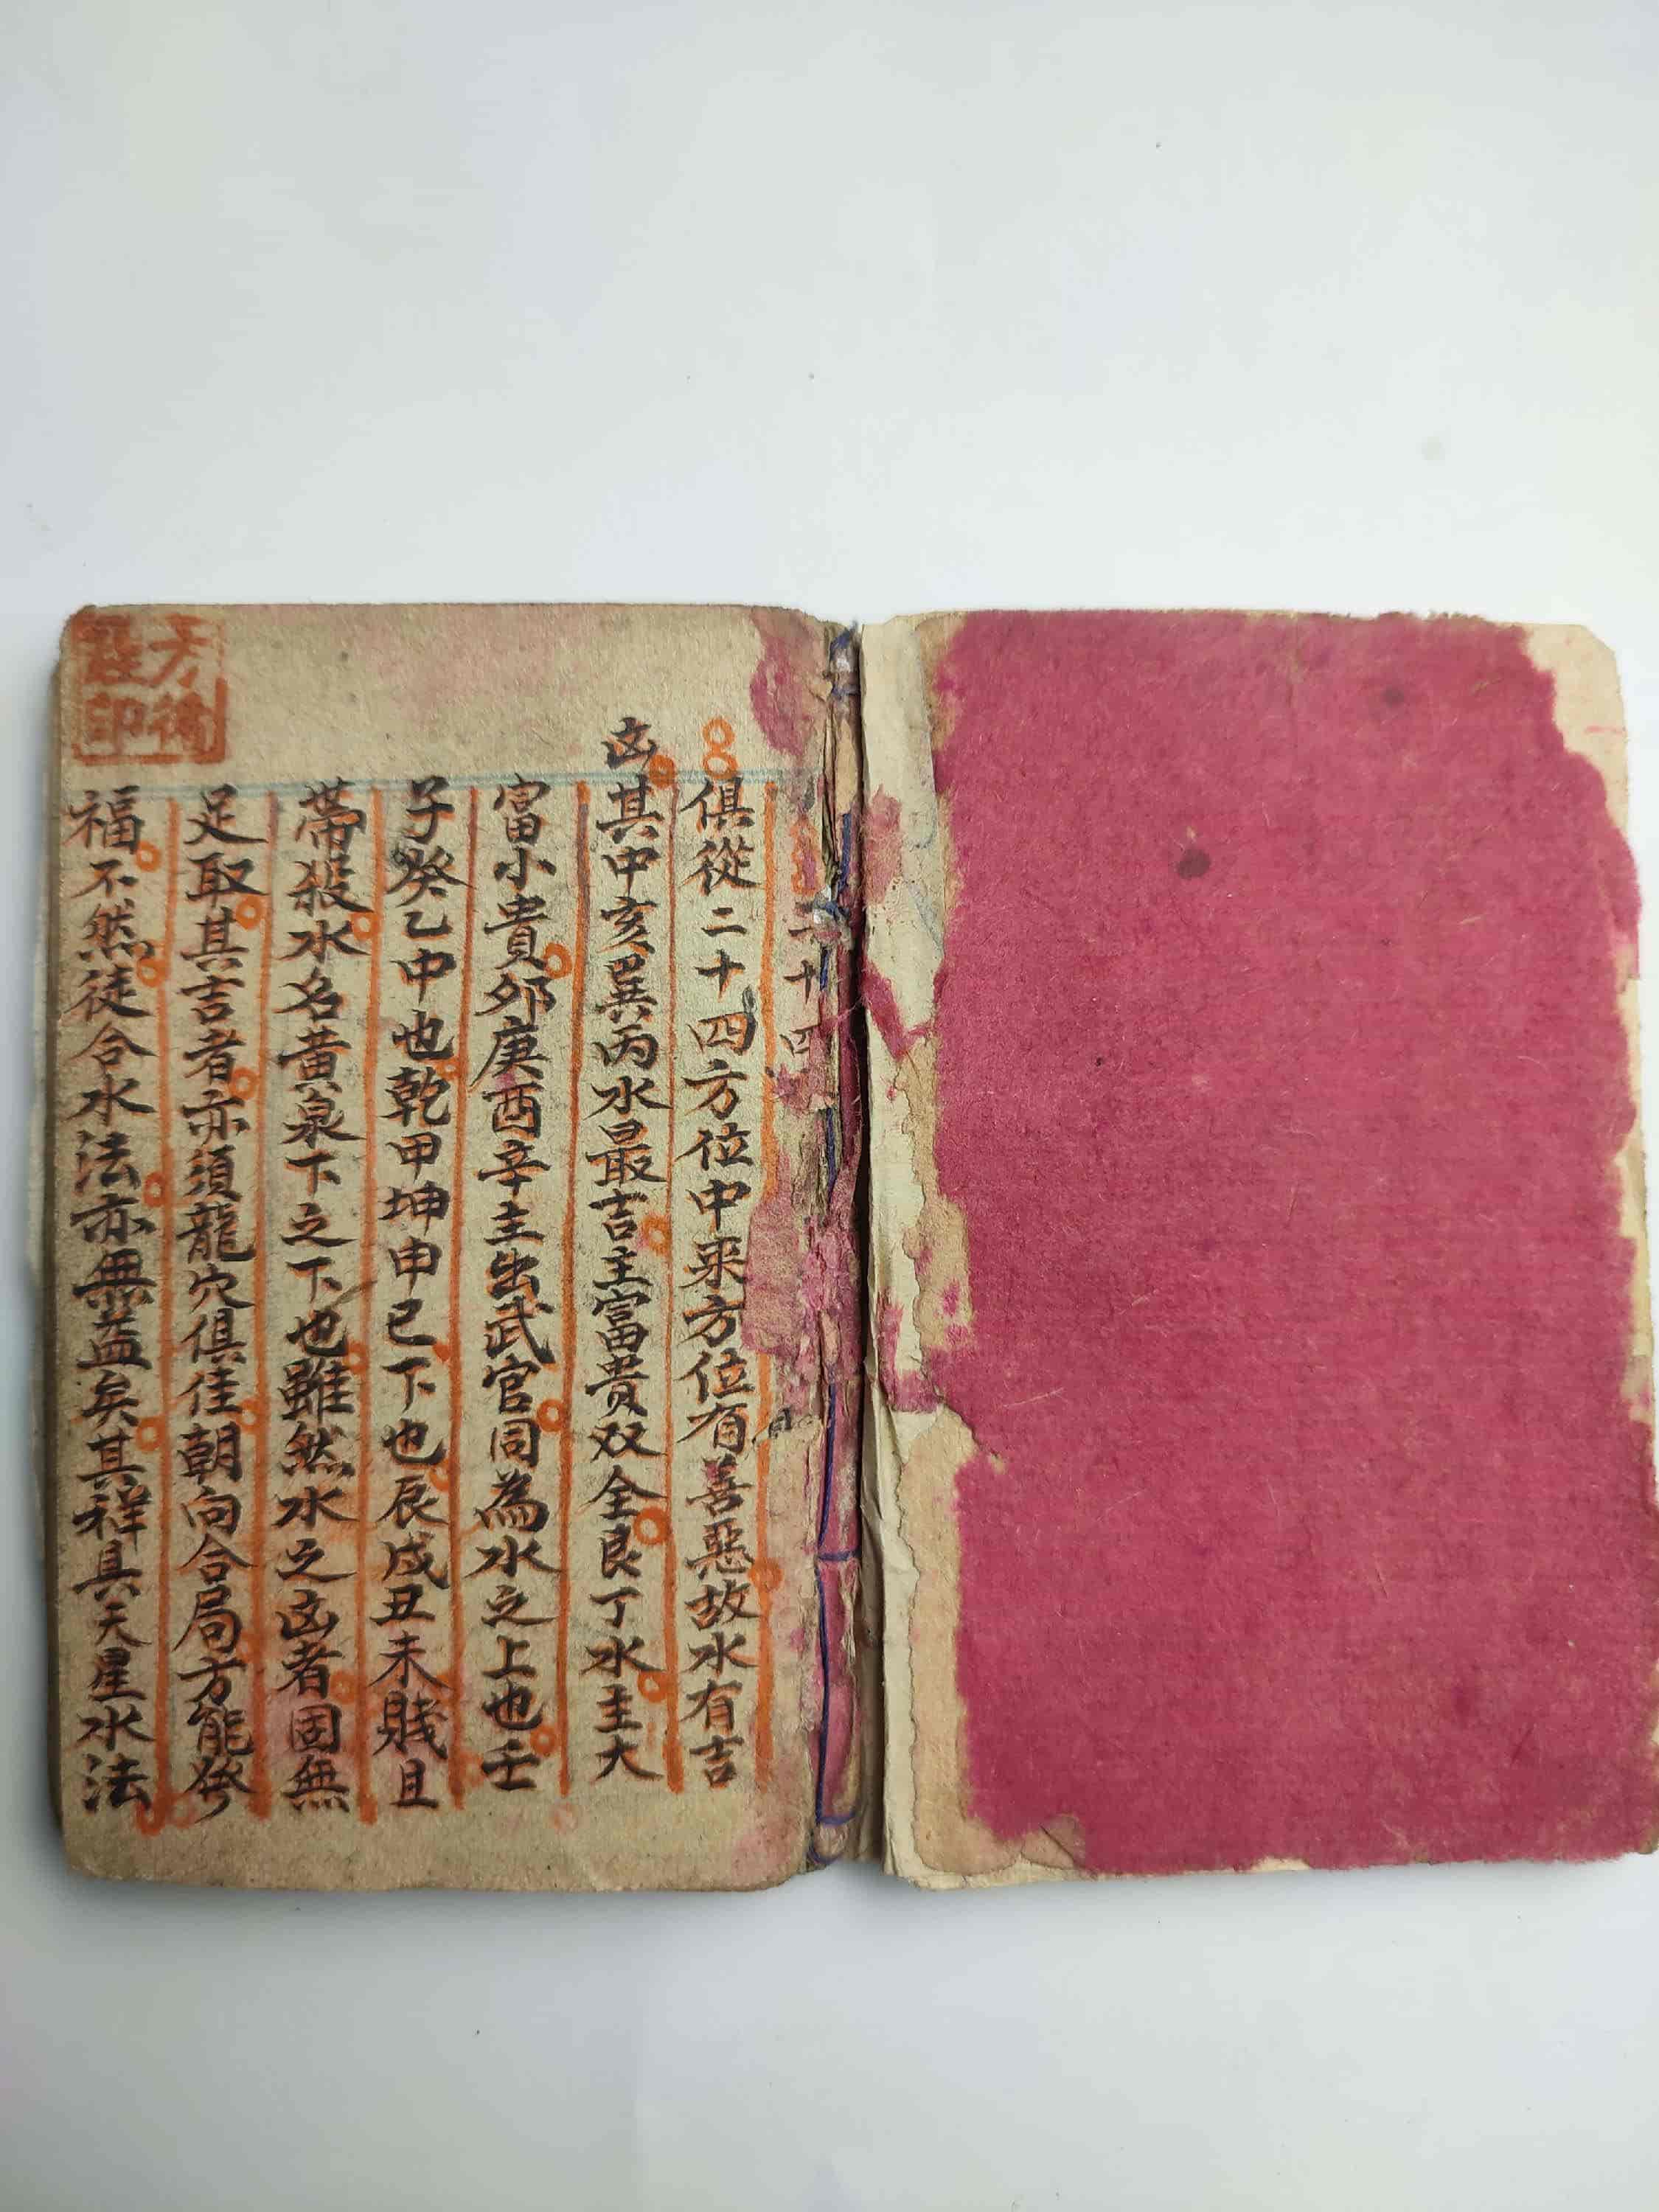 二十四
俱從二十四方位中来方位有善惡故水有吉
凶其中亥巽丙水最吉主富貴双全艮丁水主大
富小貴卯庚酉辛主出武官同為水之上也壬
子癸乙中也乾甲坤申巳下也辰戌丑未賤且
帶殺水名黃泉下之下也雖然水之凶者固無
足取其吉者亦須龍穴俱佳朝向合局方能發
福不然徒合水法亦無益矣其祥具天星水法
印